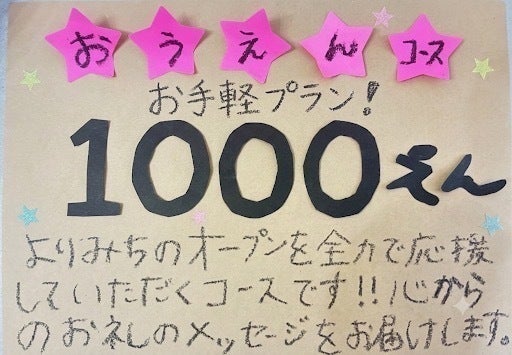 おうえんコース
お手軽プラン!
1000えん
よりみちのオープンを全力で応援
していただくコースです!!心から
のお礼のメッセージをお届けします。